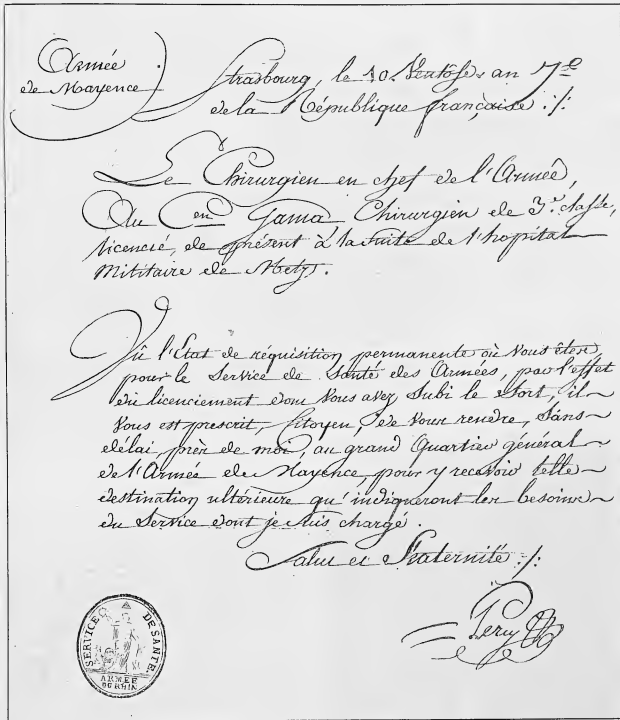 Armée
de Mayence
Strasbourg, le 10 Ventôse an 7e
de la République française ./.
Le Chirurgien en chef de l'Armée,
Au Cen Gama Chirurgien de 3e classe,
licencié, de présent à la suite de l'hopital
Militaire de Metz.
Vû l'Etat de réquisition permanente où vous êtes
pour le Service de Santé des Armées, par l'effet
du licenciement dont vous avez subi le sort, il
vous est prescrit, Citoyen, de vous rendre, sans
délai, près de moi, au grand Quartier général
de l'Armée de Mayence, pour y recevoir telle
destination ultérieure qu'indiqueront les besoins
du Service dont je suis chargé.
Salut et Fraternité ./.
Percy
SERVICE DE SANTÉ.
ARMÉE
DU RHIN